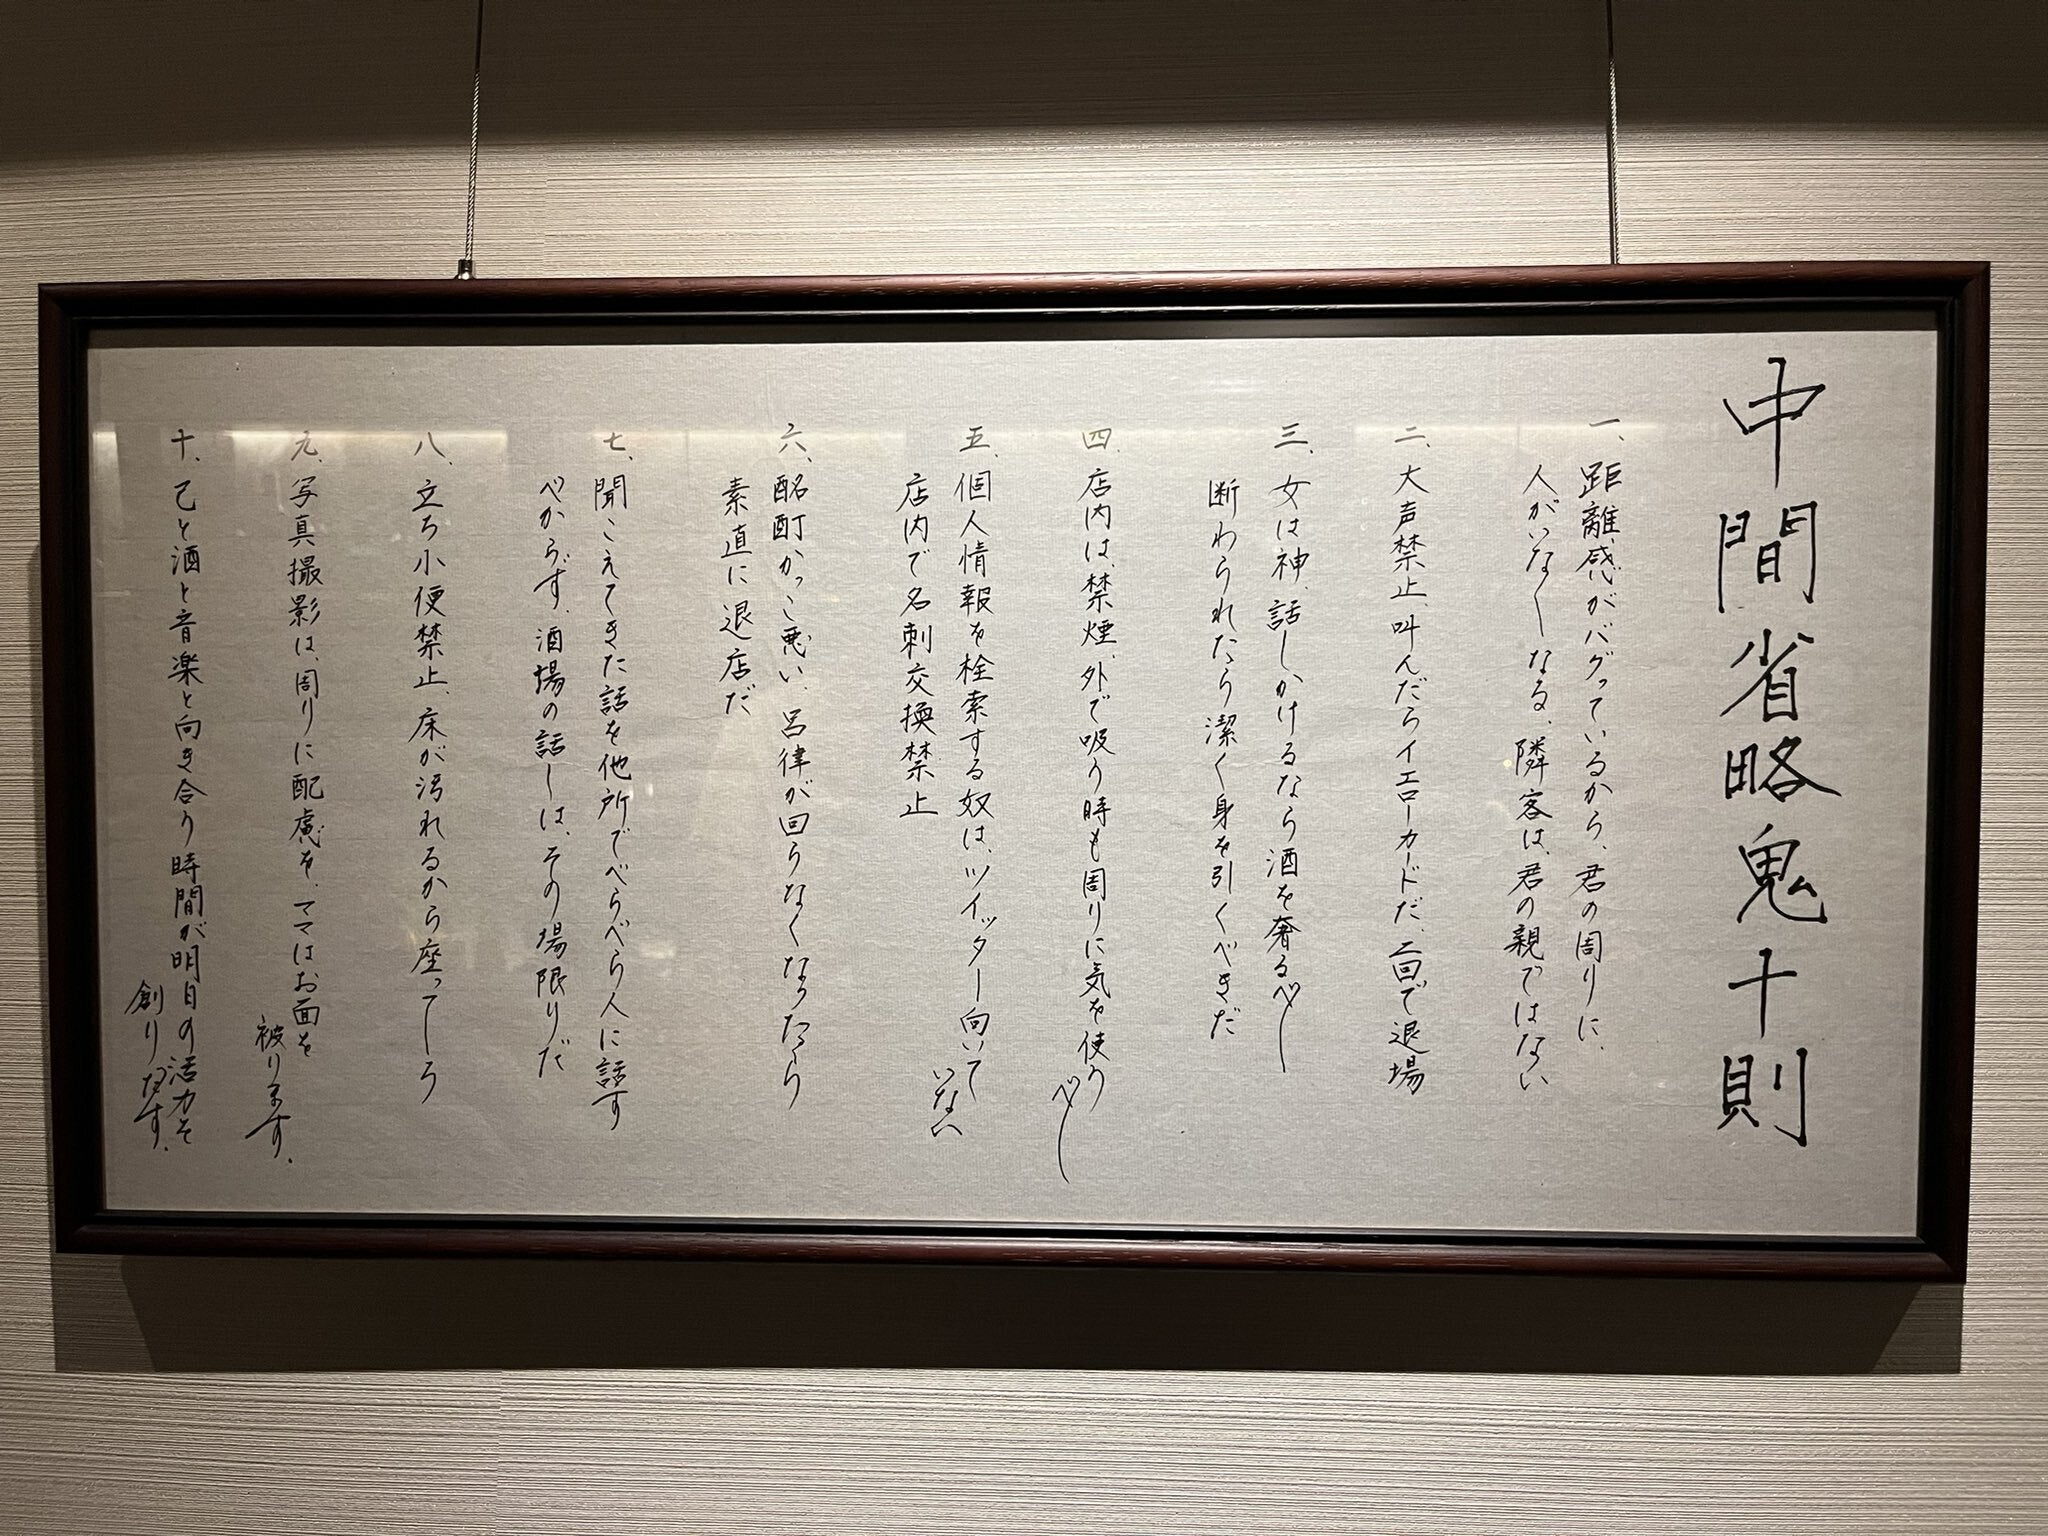 中間省略鬼十則
一、距離感がバグっているから、君の周りに、
人がいなくなる、隣客は、君の親ではない
二、大声禁止、叫んだらイエローカードだ、二回で退場
三、女は神、話しかけるなら酒を奢るべし
断わられたら潔く身を引くべきだ
四、店内は、禁煙、外で吸う時も周りに気を使う
べし
五、個人情報を検索する奴は、ツイッター向いて
いない
店内で名刺交換禁止
六、酩酊かっこ悪い、呂律が回らなくなったら
素直に退店だ
七、聞こえてきた話を他所でべらべら人に話す
べからず、酒場の話しは、その場限りだ
八、立ち小便禁止、床が汚れるから座ってしろ
九、写真撮影は、周りに配慮を、ママはお面を
被ります.
十、己と酒と音楽と向き合う時間が明日の活力を
創りなす.